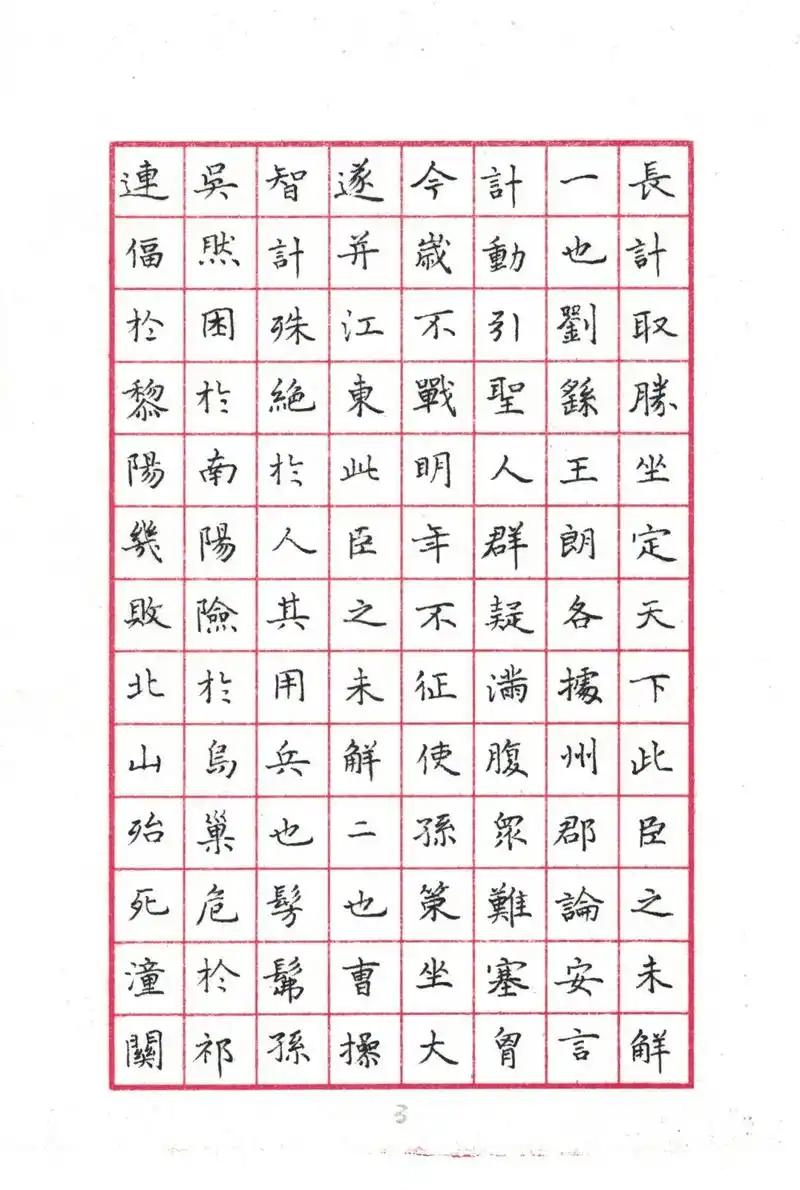 長計取勝坐定天下此臣之未解
一也劉繇王朗各據州郡論安言
計動引聖人群疑滿腹眾難塞胷
今歲不戰明年不征使孫策坐大
遂并江東此臣之未解二也曹操
智計殊絕於人其用兵也髣髴孫
吳然困於南陽險於烏巢危於祁
連偪於黎陽幾敗北山殆死潼關
3